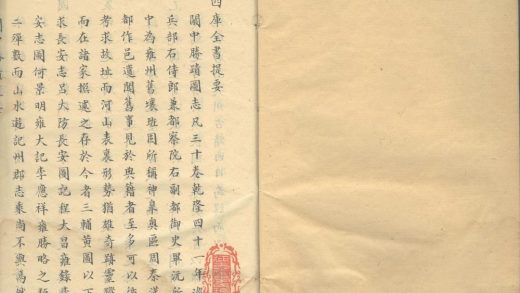 四庫全書提要
關中勝蹟圖志凡三十卷乾隆四十一年
兵部右侍郎兼都察院右副都御史畢沅所
中為雍州舊壤班固所稱神臯奧區周秦漢
都作邑遺聞舊事見於典籍者至多可以
考求故址而河山表裏形勢猶雄奇蹟靈
而在諸家撰述之存於今者三輔黃圖以下
求長安志呂大防長安圖記程大昌雍錄
安志圖何景明雍大記李應祥雍勝略之
二殫數而山水遊記州郡志乘尚不與焉